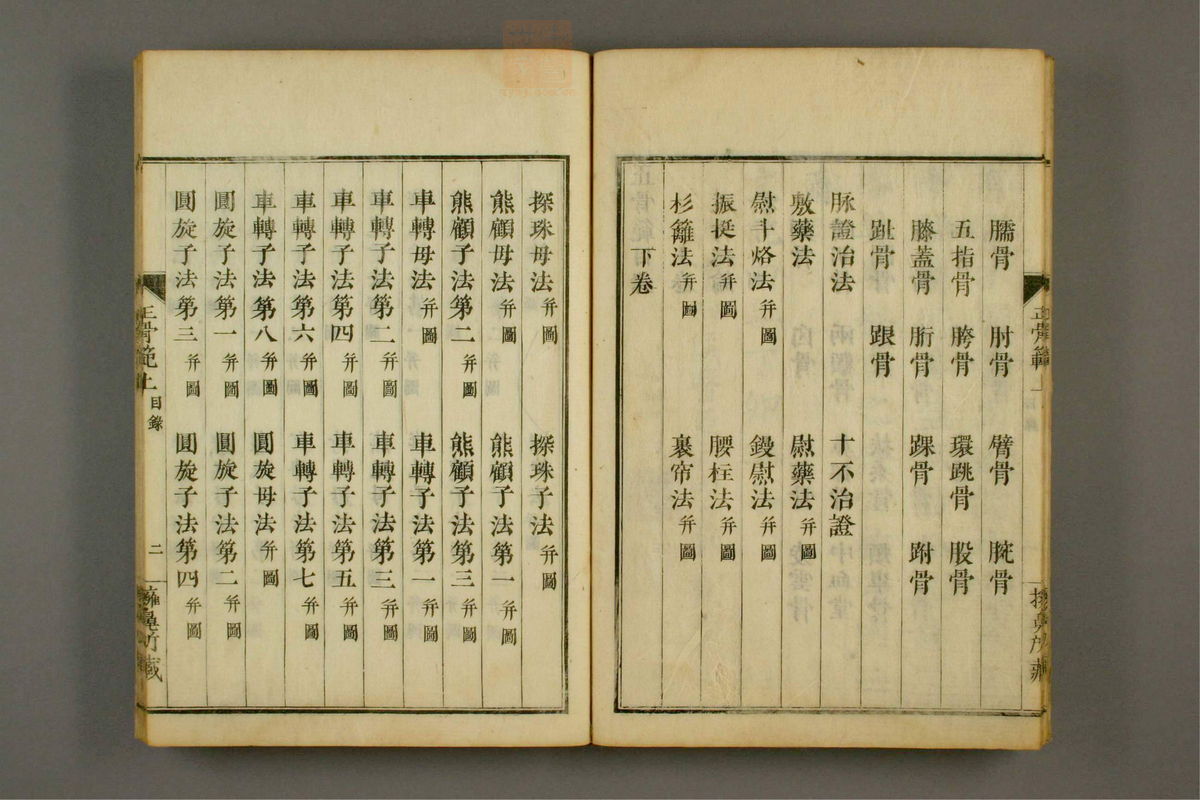 臑骨　肘骨　臂骨　腕骨
五指骨　胯骨　環跳骨　股骨
膝蓋骨　䯒骨　踝骨　跗骨
趾骨　跟骨
脉證治法　十不治證
敷藥法　慰藥法并圖
慰斗烙法并圖　鏝慰法并圖
振挺法并圖　腰柱法并圖
杉籬法并圖　裹帘法并圖
下卷
探珠母法并圖　探珠子法并圖
熊顧母法并圖　熊顧子法第一并圖
熊顧子法第二并圖　熊顧子法第三并圖
車轉母法并圖　車轉子法第一并圖
車轉子法第二并圖　車轉子法第三并圖
車轉子法第四并圖　車轉子法第五并圖
車轉子法第六并圖　車轉子法第七并圖
車轉子法第八并圖　圓旋母法并圖
圓旋子法第一并圖　圓旋子法第二并圖
圓旋子法第三并圖　圓旋子法第四并圖
正骨範上　目錄　二